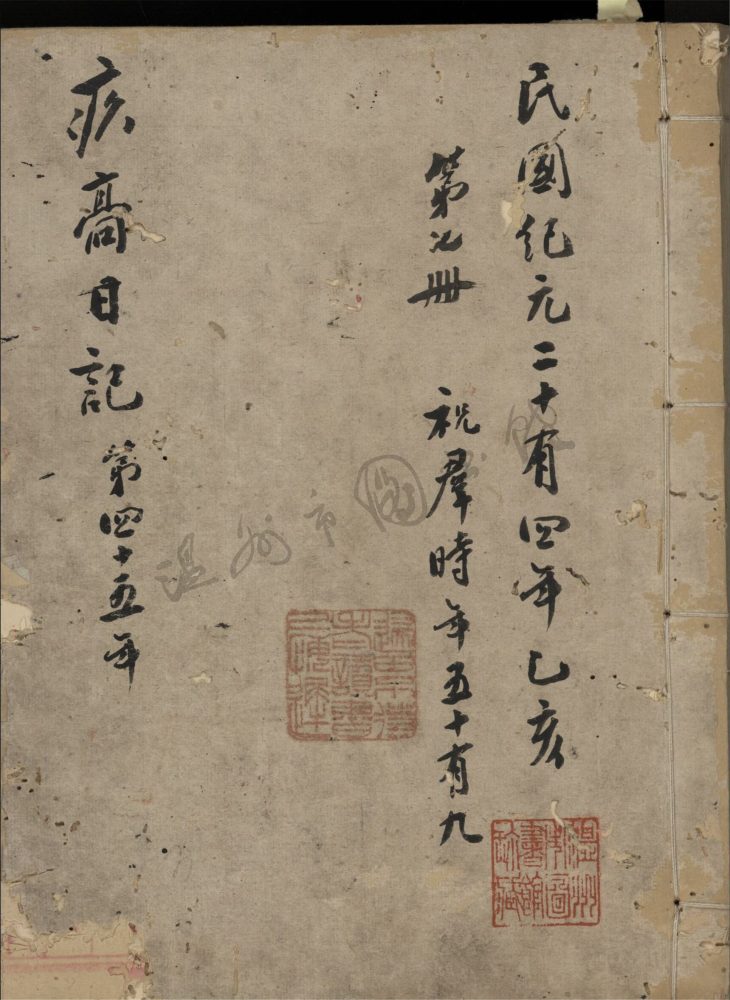 民國紀元二十有四年乙亥
第七冊 祝羣時年五十有九
疚䯧日記 第四十五年
温州市圖
溫州市圖書館